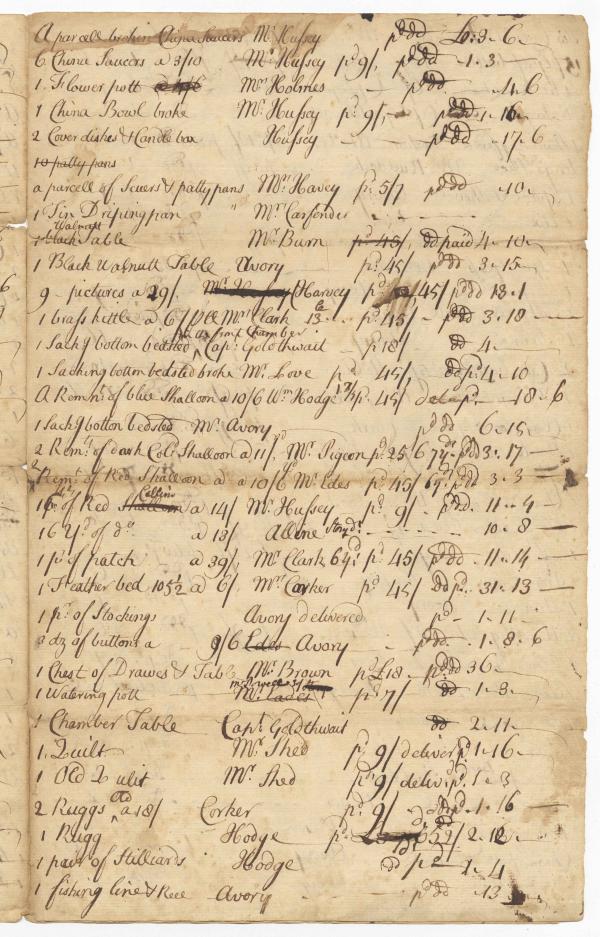 A parcell broken China Saucers Mr Hussey pd dd £0: 9. 6
6 China Saucers a 3/10 Mr Hussey pd 9/, pd dd 1. 3
1. Flower pott Mrs Holmes pd dd . 4. 6
1 China Bowl broke Mr Hussey pd 9/, pd dd 1. 16
2 Cover dishes & Candle box Hussey pd dd . 17. 6
10 patty pans
a parcell of Scuers & patty pans Mrs Havey pd 5/7 pd dd . 10
1 Tin Driping pan " Mr Carpender
Walnut
1 black Table Mr Burn pd 45/, dd paid 4. 10
1 Black Walnutt Table Avory pd 45/ pd dd 3. 15
9 pictures a 29/. Harvey 45/ pd dd 13. 1
1 brass kettle a 6/ Mrs Clark 13 pd 45/ pd dd 3. 18
1 Sackg bottom bedsted Capt Goldthwait pd 18/ dd 4
1 Sacking bottom bedsted broke Mr Love pd 45/, dd pd 4. 10
A Remnt of blue Shalloon a 10/6 Wm Hodge pd 45/ 18. 6
1 Sackg bottom bedsted Mr Avory pd dd 6. 15
2 Remts of dark Cold Shalloon a 11/, Mr Pigeon pd 25/6 pd dd 3. 17
2 Remts of Red Shalloon a 10/6 Mr Edes pd 45/ pd dd 3. 3
Collins
of Red Shalloon a 14/ Mr Hussey pd 9/ pd dd 11. 4
16 Yds of do a 13/ Alline 10. 8
1 ps of patch a 39/, Mr Clark 6 yds pd 45/ pd dd 11. 14
1 Feather bed 105½ a 6/ Mrs Corker pd 45/ dd pd 31. 13
1 pr of Stockings Avory delivered pd 1. 11
a dz of buttons a 9/6 Edes Avory pd dd . 1. 8. 6
1 Chest of Drawes & Table Mr Brown pd £18 pd dd 36
1 Watering pott Mr Eades pd 7/ dd 1. 8
1 Chamber Table Capt Goldthwait dd 2. 11
1. Quilt Mr Shed pd 9/ deliver pd 1. 16
1 Old Quilt Mr Shed pd 9/ deliv pd 1. 3
2 Old Ruggs a 18/ Corker pd 9/ dd pd 1. 16
1 Rugg Hodge pd 2. 12
1 pair of Stilliards Hodge dd pd 2. 4
1 fishing line & Reee Avory pd dd . 13